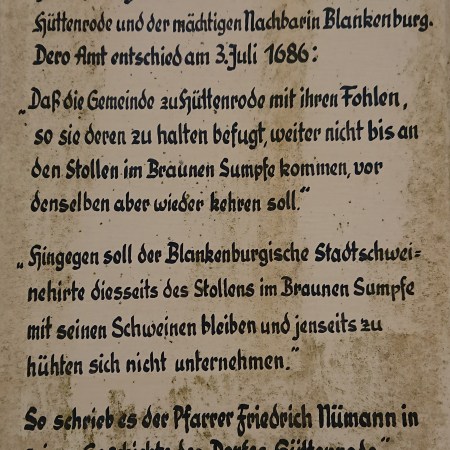 Hüttenrode und der mächtigen Nachbarin Blankenburg.
Dero Amt entschied am 3. Juli 1686:
„Daß die Gemeinde zu Hüttenrode mit ihren Fohlen,
so sie deren zu halten befugt, weiter nicht bis an
den Stollen im Braunen Sumpfe kommen, vor
denselben aber wieder kehren soll."
„Hingegen soll der Blankenburgische Stadtschwei=
nehirte diesseits des Stollens im Braunen Sumpfe
mit seinen Schweinen bleiben und jenseits zu
hühten sich nicht unternehmen."
So schrieb es der Pfarrer Friedrich Nümann in
Geschichte des Dorfes Hüttenrode"